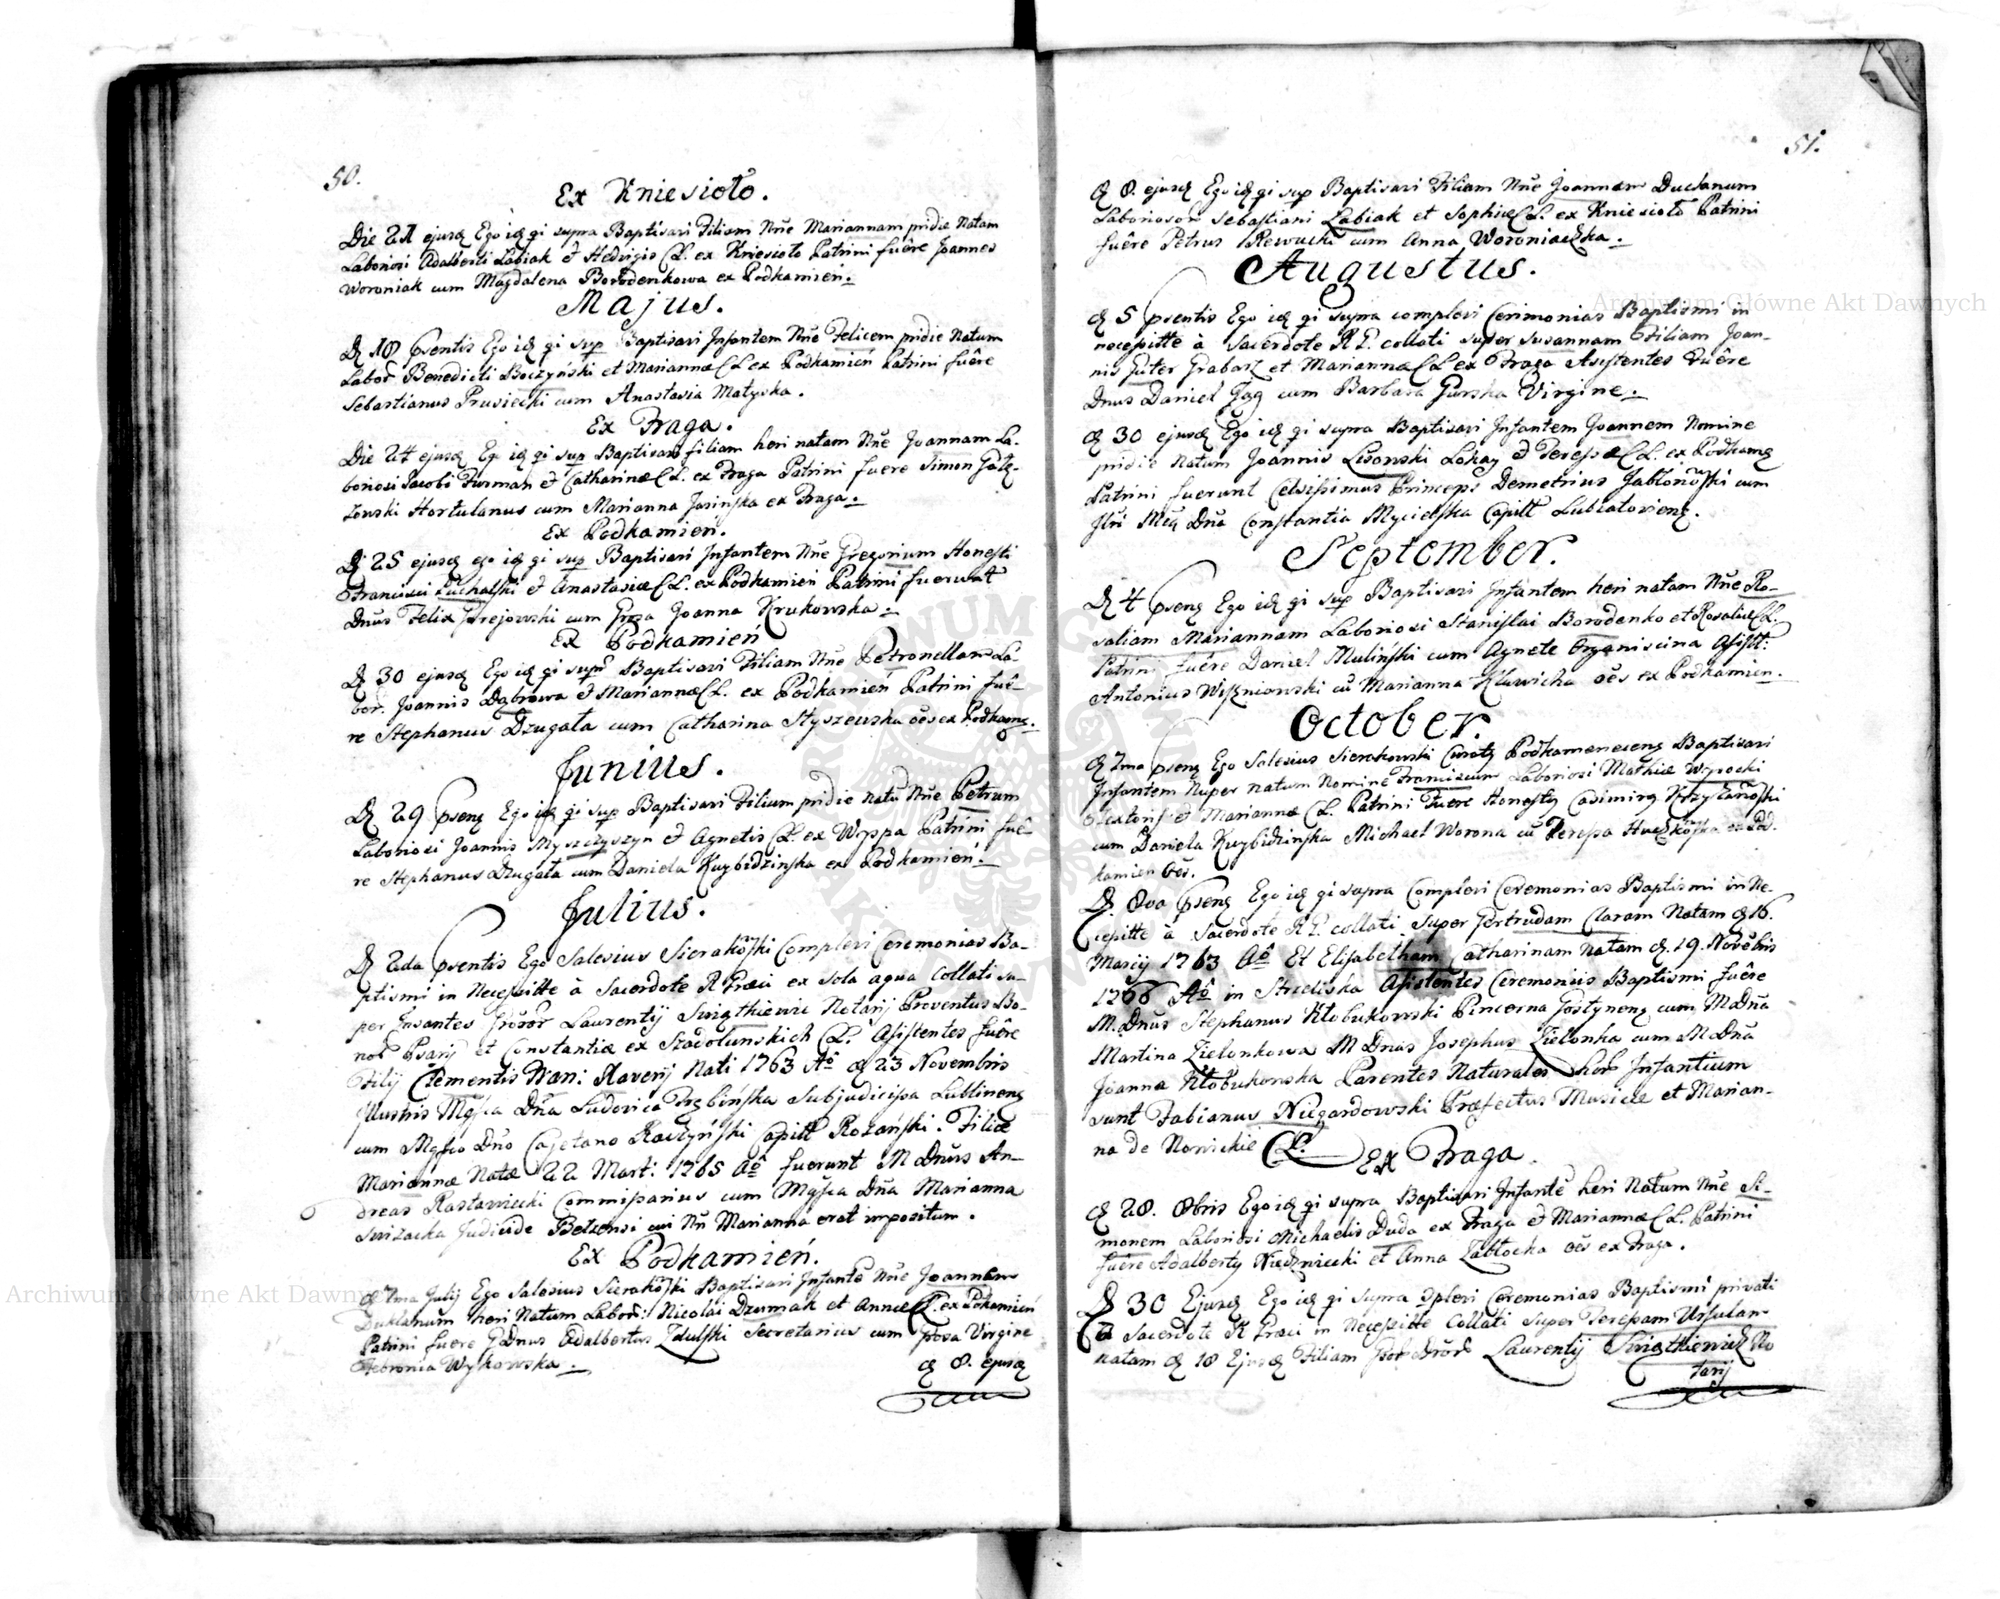 50.
Ex Kniesioło.
Die 21 ejusq Ego idq qi supra Baptisavi Filiam Nne Mariannam pridie Natam
Laboriosi Adalberti Labiak et Hedvigis CL. ex Kniesioło Patrini fuêre Joannes
Woroniak cum Magdalena Borodenkowa ex Podkamień.
Majus.
D 18 psentis Ego idq qi sup Baptisavi Infantem Nne Felicem pridie Natum
Labor Benedicti Boczyński et Mariannæ CL ex Podkamień Patrini fuêre
Sebastianus Prusiecki cum Anastasia Matyska.
Ex Fraga.
Die 24 ejusq Ego idq qi sup Baptisavi filiam heri natam Nne Joannam La-
boriosi Jacobi Furman et Catharinæ CL. ex Fraga Patrini fuere Simon
Hortulanus cum Marianna Jasinska ex Fraga.
Ex Podkamień.
D 25 ejusq ego idq qi sup Baptisavi Infantem Nne Gregorium Honesti
Francisci Puchalski et Anastasiæ CL. ex Podkamień Patrini fuerunt
Dnus Felix cum Joanna Krukowska.
Ex Podkamień
D 30 ejusq Ego idq qi supr Baptisavi Filiam Nne Petronellam La-
bor. Joannis Dąbrowa et Mariannæ CL. ex Podkamień Patrini fuê-
re Stephanus Dzugała cum Catharina Styszewska oẽs ex Podkamq.
Junius.
D 29 psenq Ego idq qi sup Baptisavi Filium pridie natu Nne Petrum
Laboriosi Joannis Myszczyszyn et Agnetis CL. ex Wyspa Patrini fuê-
re Stephanus Dzugała cum Daniela Kuybidzinska ex Podkamień.
Julius.
D 2da psentis Ego Salesius Sierakowski Complevi Ceremonias Ba-
ptismi in Necessitte à Sacerdote R Græci ex sola aqua Collati su-
per Infantes Laurentij Swiątkiewic Notarij Proventus Bo-
nor Psarij et Constantiæ ex Szadolunskich CL. Assistentes fuêre
Filij Clementis Fran: Xaverij Nati 1763 Aô d 23 Novembris
Illustris Mgfca Dña Ludovica Trębińska Subjudicissa Lublinenq
cum Mgfco Dño Cajetano Raczyński Capitt Rożański. Filiæ
Mariannæ Natæ 22 Mart: 1765 Aô fuerunt M Dnus An-
dreas Rastawiecki Commissarius cum Mgfca Dña Marianna
Swizacka Judicide Belzensi cui Nñ Marianna erat impositum.
Ex Podkamień.
d 7ma Julij Ego Salesius Sierakowski Baptisavi Infantẽ Nne Joannem
Duklanum heri Natum Labori: Nicolai Dzumak et Annæ CL. ex Pokamień
Patrini fuere GDnus Adalbertus Zdulski Secretarius cum Virgine
Febronia Wykowska.
d 8. ejusq
51.
d 8. ejusq Ego idq qi sup Baptisavi Filium Nne Joannem Duclanum
Laboriosor Sebastiani Labiak et Sophiæ CL. ex Kniesioło Patrini
fuêre Petrus Rewucki cum Anna Woroniaczka.
Augustus.
d 5 psentis Ego idq qi supra complevi Cerimonias Baptismi in
necessitte a Sacerdote R G. collati super Susannam Filiam Joan-
nis Guter Grabarz et Mariannæ CL ex Fraga Assistentes Fuêre
Dnus Daniel Jag cum Barbara Gurska Virgine.
d 30 ejusq Ego idq qi supra Baptisavi Infantem Joannem Nomine
pridie Natum Joannis Lisonski Lokay et Teressæ CL. ex Podkamq
Patrini fuerunt Celsissimus Princeps Demetrius Jabłonowski cum
Jllũ Mgq Dña Constantia Mycielska Capitt Lubiatovienq.
September.
D 4 psenq Ego idq qi sup Baptisavi Infantem heri natam Nne Ro-
saliam Mariannam Laboriosi Stanislai Borodenko et Rosaliæ CL.
Patrini fuêre Daniel Mulinski cum Agnete Organiscina Assistt:
Antonius Wiszniowski cũ Marianna Klewicka oẽs ex Podkamień.
October.
d 7ma psenq Ego Salesius Sierakowski Curatq Podkamenecenq Baptisavi
Infantem Nuper natum Nomine Franciscum Laboriosi Mathiæ Wysocki
Textoris et Mariannæ CL. Patrini Fuere Honestq Casimirq Krzyżanowski
cum Daniela Kuybidzińska Michael Worona cũ Teressa ex Pod-
kamien oẽs.
D. 8va psenq Ego idq qi supra Complevi Ceremonias Baptismi in Ne-
cessitte à Sacerdote R G. collati super Gertrudam Claram Natam d 16.
Marcij 1763 Aô Et Elisabetham Catharinam natam d. 19. Novẽbris
1766 Aô in Streliska Assistentes Ceremoniis Baptismi fuêre
M. Dñus Stephanus Kłobukowski Pincerna Gostynenq cum MDña
Martina Zielonkowa M Dnus Josephus Zielonka cum M Dña
Joanna Kłobukowska Parentes Naturales hor Infantium
sunt Fabianus Niegardowski Præfectus Musicæ et Marian-
na de Nowickie CL.
Ex Fraga.
d 28. 8bris Ego idq qi supra Baptisavi Infantẽ heri Natum Nne Si-
monem Laboriosi Michaelis Duda ex Fraga et Mariannæ CL. Patrini
fuêre Adalbertq Niedzwiecki et Anna Zabłocka oẽs ex Fraga.
D 30 Ejusq Ego idq qi supra cplevi Ceremonias Baptismi privati
a Sacerdote R Græci in Necessitte Collati Super Teressam Ursulam
natam d 18 Ejusq Filiam Laurentij Swiątkiewicz No
tarij
Archiwum Główne Akt Dawnych
Archiwum Główne Akt Dawnych
ARCHIWUM GŁÓWNE AKT DAWNYCH